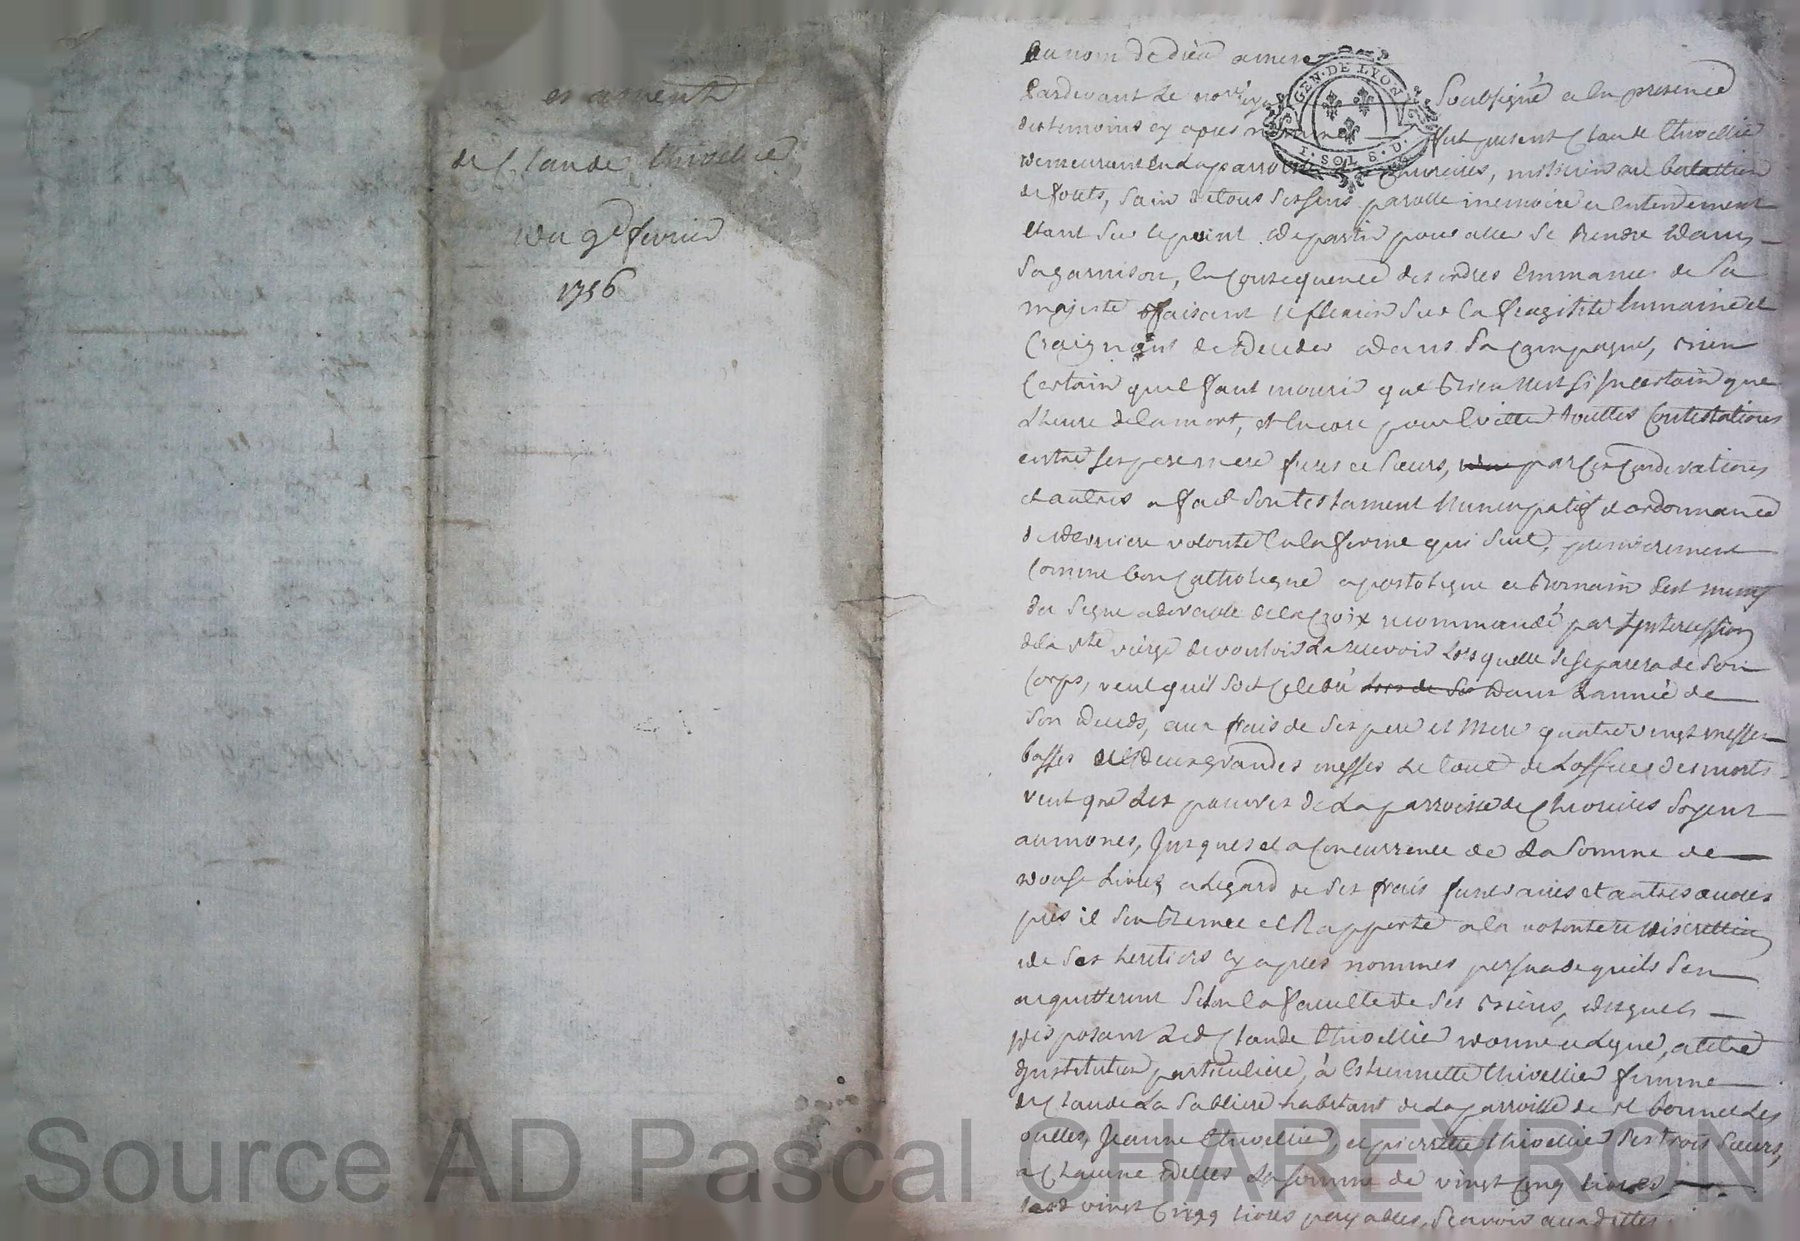 estament
de Claude Thivellier
du 9e fevrier
1756
Au nom de dieu amen
Pardevant le nore royal soubsigné en la presence
des temoins cy apres nommés fut present Claude thivellier
demeurant en la parroisse de milicien au batallion
de , sain de tous ses sens parolle memoire et entendement
etant sur le point de partir pour aller se rendre dans
sa garnison, en consequence des ordres emmanés de sa
majesté faisant reflexion sur la fragilité humaine et
craignant de deceder dans la campagne, rien
certain quil faut mourir que rien nest si incertain que
lheure de la mort, et encore pour eviter touttes contestations
entre ses pere mere freres et sœurs, par ces considerations
et autres a fait son testament nuncupatif et ordonnance
de derniere volonté en la forme qui suit, premierement
comme bon catholique apostolique et romain sest muny
du signe adorable de la croix recommandé par lintercession
de la ste vierge de vouloir la recevoir lors quelle se separera de son
corps, veut quil soit celebré lors de son dans lannée de
son deces, aux frais de ses pere et mere quatre vingt messes
basses et deux grandes messes le tout de loffice des morts
veut que les pauvres de la parroisse de Chevrieres soyent
aumones, jusques et a concurrence de la somme de
douse livres a legard de ses frais funeraires et autres œuvres
pies il sen remet et rapporte a la volonté et discretion
de ses heritiers cy apres nommés persuade quils sen
acquitteront selon la faculté de ses biens, desquels
disposant led Claude thivellier donne et legue, a titre
dinstitution particuliere, à Estiennette thivellier femme
de Claude La Sabliere habitant de la parroisse de st bonnet les
oulles, Jeanne thivellier, et pierrette thivellier ses trois sœurs,
a chacune delles la somme de vingt cinq livres
lesd vingt cinq livres payables, scavoir auxdittes
GEN. DE LYON
1. SOL 8. D.
Source AD Pascal CHAREYRON